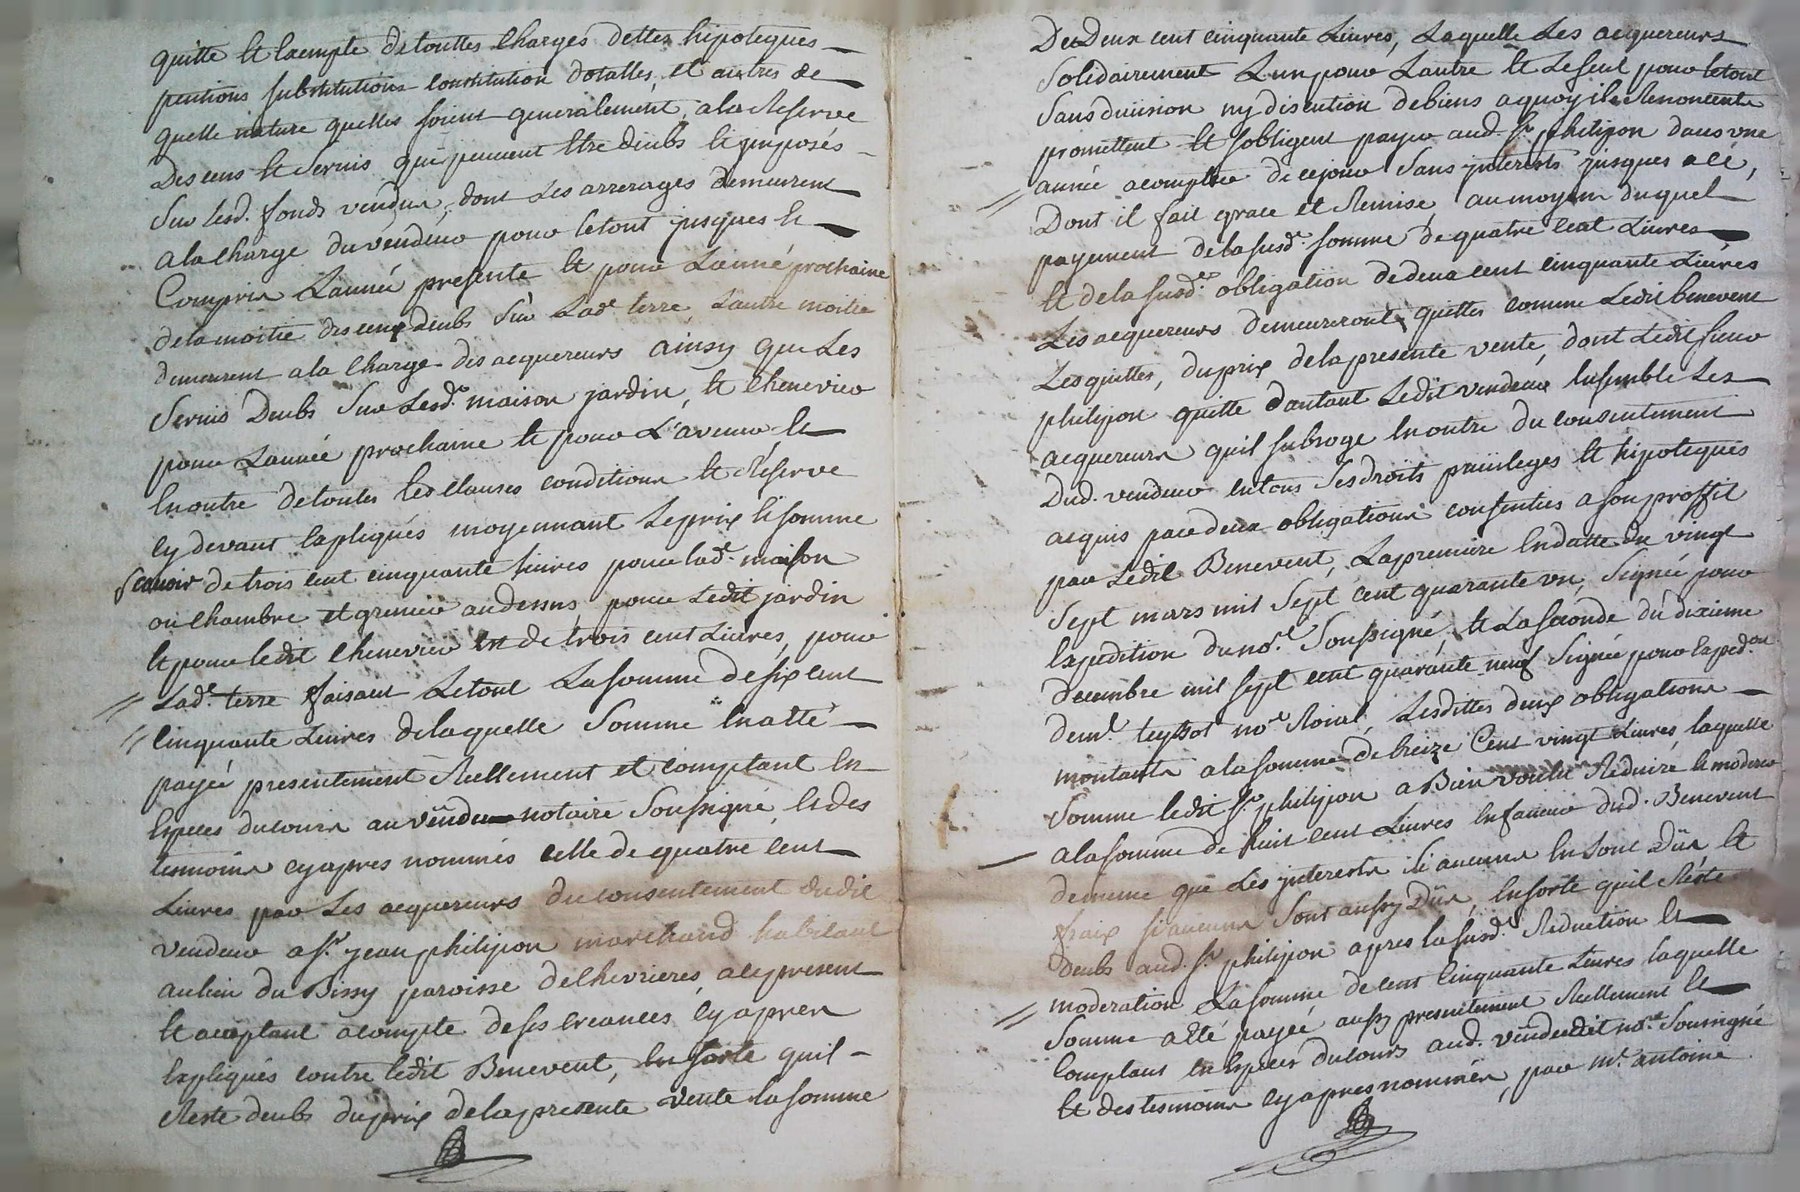 quitte et Exempte detouttes Charges dettes hipoteques
pentions substitutions constitution dotalles, et autres de
quelle nature quelles soient generalement, ala Reserve
Des cens et Servis qui peuvent Etre deubs et imposés
Sur lesd. fonds vendus, dont Les arrerages demeurent
ala Charge du vendeur pour le tout jusques Et
Compris L'année presente Et pour L'année prochaine
de la moitie des cens deubs Sur Lade terre, L'autre moitie
demeurent a la Charge des acquereurs ainsy que Les
Servis Deubs Sur Lesd. maison jardin, Et Chenevier
pour L'année prochaine Et pour L'avenir Et
En outre de toutes les Clauses conditions Et Réserve
Cy devant Expliqués moyennant Le prix Et somme
Scavoir de trois cent cinquante Livres pour lade maison
ou Chambre et grenier audessus, pour Ledit jardin
Et pour ledit Chenevier Et de trois cent Livres, pour
Lade terre faisant Le tout La somme de six cent
Cinquante Livres de laquelle Somme En a Eté
payée presentement Reellement et comptant En
Especes du cours au vëu du notaire Soussigné, Et des
tesmoins cy apres nommés celle de quatre cent
Livres par Les acquereurs du consentement dudit
vendeur a Sr. jean philipon marchand habitant
au lieu du Bissy paroisse de Chevrieres, acy present
Et acceptant acompte de ses Creances Cy apres
Expliqués contre ledit Benevent, En sorte quil
Reste deub du prix de la presente vente La somme
De Deux cent cinquante Livres, Laquelle Les acquereurs
Solidairement L'un pour L'autre Et Le seul pour le tout
Sans division ny discution de biens a quoy ils Renoncent
promettent Et s'obligent payer aud. Sr. philipon dans une
année acompter de ce jour Sans interests jusques a cé,
Dont il fait grace et Remise, au moyen duquel
payement de la susde. somme de quatre cent Livres
Et de la susde. obligation de deux cent cinquante Livres
Les acquereurs demeureront quittes comme Ledit benevent
Les quittes, du prix de la presente vente, dont Ledit sieur
philipon quitte d'autant Ledit vendeur Ensemble Les
acquereurs quil subroge En outre du consentement
Dud. vendeur en tous Ses droits privileges Et hipoteques
acquis par deux obligations consenties a son proffit
par Ledit Benevent, La premiere En datte du vingt
Sept mars mil Sept cent quarante un, Signée pour
Expedition du nore. Soussigné, Et La seconde du dixieme
decembre mil sept cent quarante neuf Signée pour Exped.on
de mr. teyssot nore Roial, Lesdittes deux obligations
montants a la somme de treize Cent vingt Livres, laquelle
Somme ledit Sr. philipon a Bien voulu Reduire Et moderer
a la somme de huit cent Livres En faveur dud. Benevent
de meme que Les jnterests Si aucuns En sont Düs Et
fraix si aucuns Sont aussy Düs, En sorte quil Reste
deub aud. Sr. philipon apres la susde. Reduction Et
moderation La somme de cent Cinquante Livres laquelle
Somme a Eté payée aussy presentement Reellement Et
Comptant En Especes du cours aud. vendeur dit nore. Soussigné
Et des tesmoins cy apres nommés, par mr. antoine